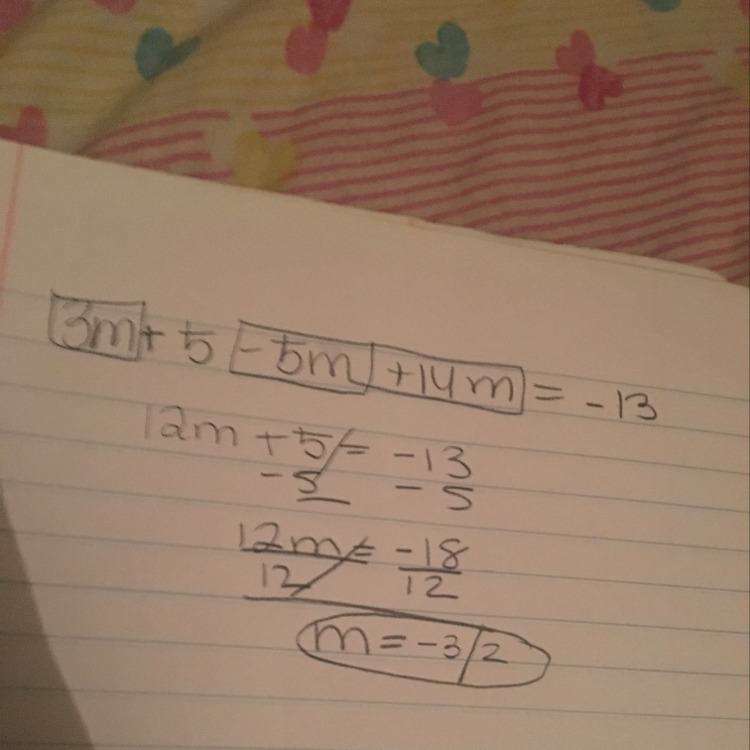 3m + 5 - 5m + 14m = -13
12m + 5 = -13
- 5 - 5
12m = -18
12 12
m = -3/2